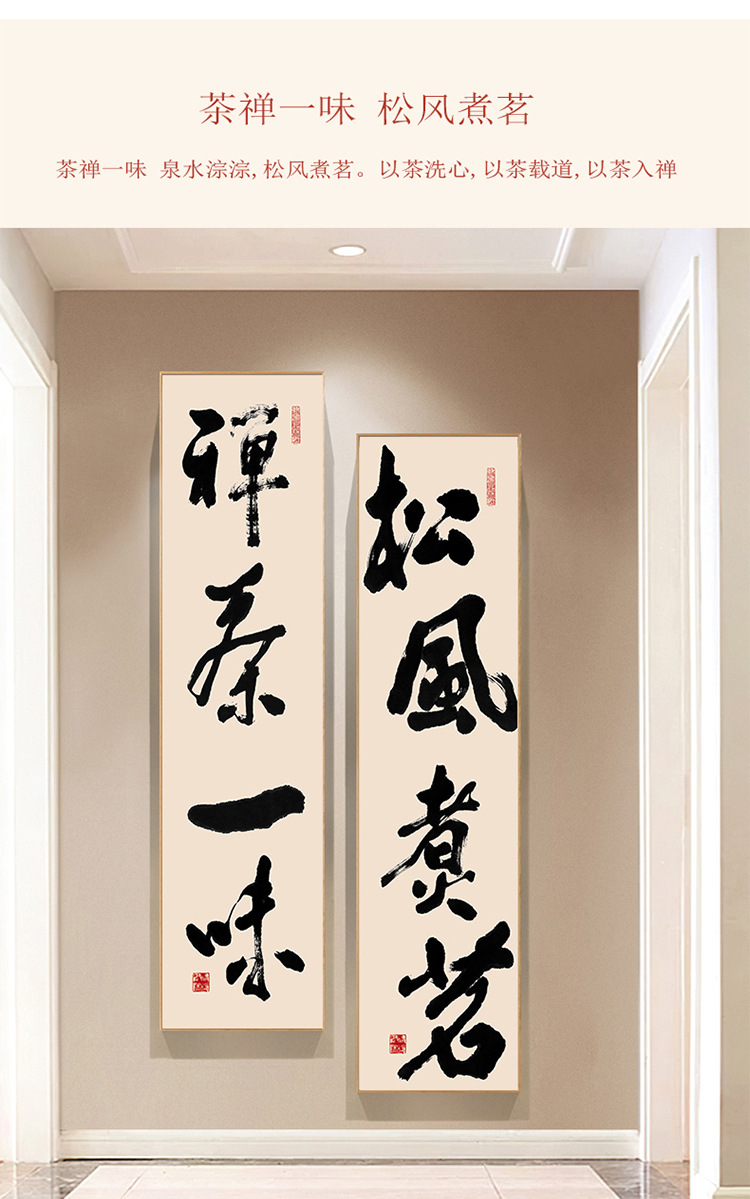 茶禅一味 松风煮茗
茶禅一味 泉水淙淙,松风煮茗。以茶洗心,以茶载道,以茶入禅
禅茶一味
松風煮茗